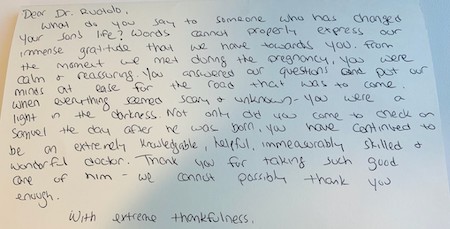 Dear Dr. Ruotolo,
What do you say to someone who has changed
your son's life? Words cannot properly express our
immense gratitude that we have towards you. From
the moment we met during the pregnancy, you were
calm & reassuring. You answered our questions and put our
minds at ease for the road that was to come.
When everything seemed scary & unknown - you were a
light in the darkness. Not only did you come to check on
Samuel the day after he was born, you have continued to
be an extremely knowledgable, helpful, immeasurably skilled &
wonderful doctor. Thank you for taking such good
care of him - we cannot possibly thank you
enough.
With extreme thankfulness,